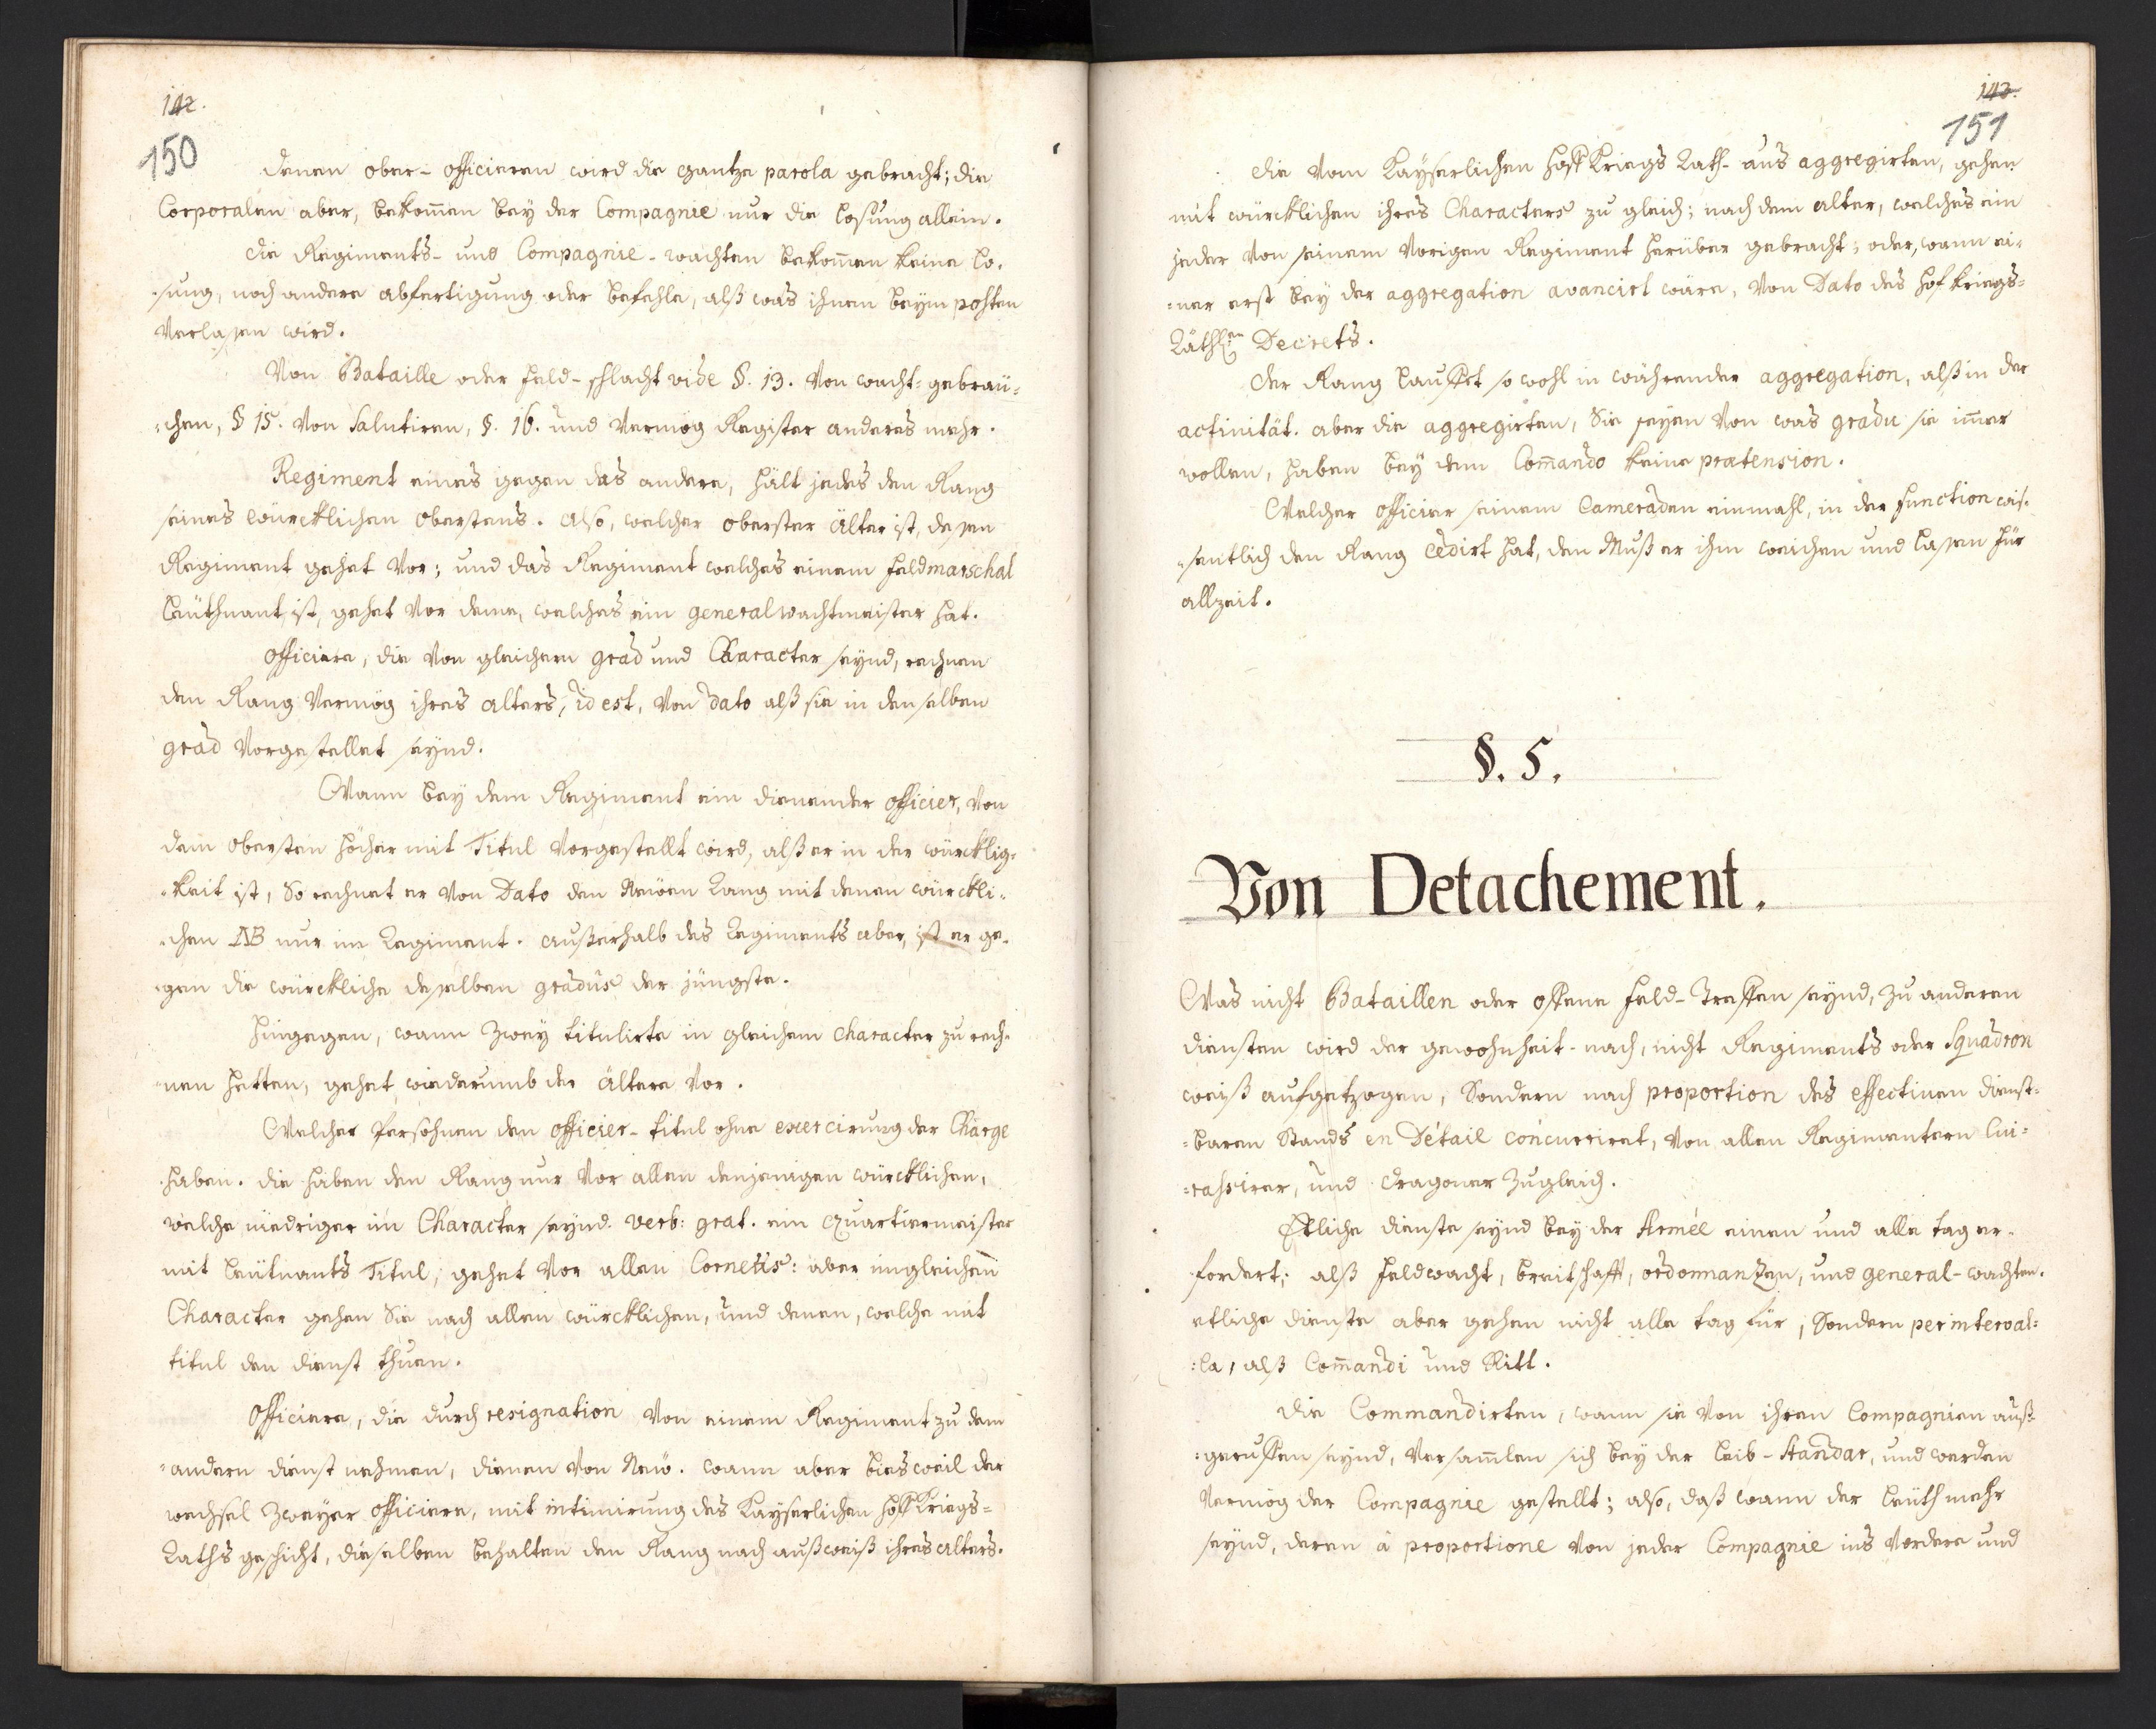 142.
150
denen ober- officieren wird die gantze parola gebracht; die
Corporalen aber, bekom̄en bey der Compagnie nur die Losung allein.
die Regiments- und Compagnie-wachten bekom̄en keine Lo-
-sung, noch andere abfertigung oder befehle, alß was ihnen beym posten
Verlassen wird.
Von Bataille oder feld-schlacht vide §. 13. Von wacht-gebräu-
-chen, § 15. Von Salutiren, §. 16. und Vermög Register anderes mehr.
Regiment eines gegen das andere, hält jedes den Rang
seines würcklichen Obristens. Also, welcher oberster Älter ist, dessen
Regiment gehet Vor; und das Regiment welches einem feldmarschal
Leüthnant ist, gehet Vor deme, welches ein generalwachtmeister hat.
Officiere, die Von gleichem grad und Character seynd, rechnen
den Rang Vermög ihres alters, id est, Von dato alß sie in denselben
grad Vorgestellet seynd.
Wann bey dem Regiment ein dienender officier, Von
dem obersten höcher mit Titul Vorgestellt wird, alß er in der würcklig-
-keit ist, So rechnet er Von Dato den Neüen Rang mit denen würckli-
-chen NB nur im Regiment. außerhalb des Regiments aber, ist er ge-
-gen die würckliche desselben gradus der jüngste.
Hingegen, wann Zwey titulirte in gleichem character zu rech-
-nen hetten, gehet wiederumb der Ältere Vor.
Welcher Persohnen den officier-titul ohne exercirung der Charge
haben. die haben den Rang nur Vor allen denjenigen würcklichen,
welche niedriger im Character seynd. verb: grat. ein Quartiermeister
mit Leütnants Titul, gehet Vor allen Cornetis: aber im gleichen
Character gehen Sie nach allen würcklichen, und denen, welche mit
titul den dienst thuen.
Officiere, die durch resignation Von einem Regiment zu dem
-andern dienst nehmen, dienen Von Neü. wann aber bisweil der
wechsel Zweyer Officiere, mit intimirung des Kayserlichen Hoff Kriegs-
Raths geschicht, dieselben behalten den Rang nach außweiß ihres alters.
143.
151
die Vom Kayserlichen Hoff Kriegs Rath- aus aggregirten, gehen
mit würcklichen ihres Characters zu gleich; nach dem alter, welches ein
jeder Von seinem Vorigen Regiment herüber gebracht; oder, wann ei-
-ner erst bey der aggregation avancirt wäre, Von Dato des Hof Kriegs-
Räthl:en Decrets.
der Rang Lauffet so wohl in währender aggregation, alß in der
activität. aber die aggregirten, Sie seyen Von was gradu sie im̄er
wollen, haben bey dem Com̄ando keine prætension.
Welcher officier seinem Cameraden einmahl, in der function wis-
-sentlich den Rang cedirt hat, dem Muß er ihm weichen und Lassen für
allzeit.
§. 5.
Von Detachement.
Was nicht Bataillen oder offene feld-Treffen seynd, zu anderen
diensten wird der gewohnheit-nach, nicht Regiments oder Squadron
weiß aufgetzogen, Sondern nach proportion des effectiven dienst-
-baren Stands en Détail concurriret, Von allen Regimentern Cui-
-rassirer, und dragoner Zugleich.
Etliche dienste seynd bey der Armée einen und alle tag er-
-fordert; alß Feldwacht, breitschafft, ordonnanzen, und general-wachten.
etliche dienste aber gehen nicht alle tag für, Sondern per interval-
-la, alß Com̄andi und Ritt.
die Commandirten, wann sie Von ihren Compagnien auß-
-geruffen seynd, Versam̄len sich bey der Leib-Standar, und werden
Vermög der Compagnie gestellt; also, daß wann der Leüth mehr
seynd, deren à proportione Von jeder Compagnie ins Vordere und